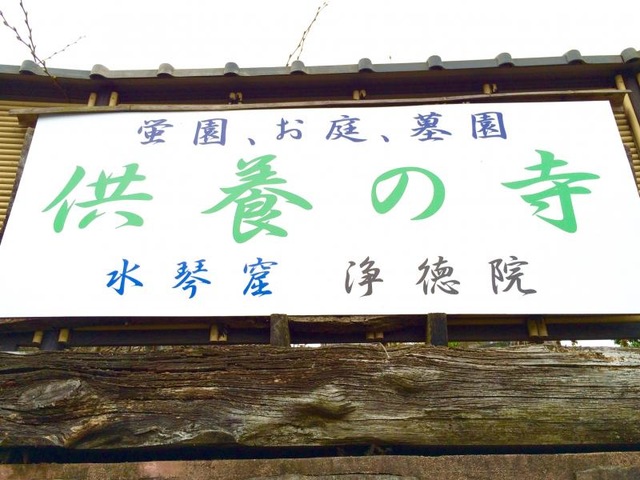 蛍園、お庭、墓園
供養の寺
水琴窟 浄徳院